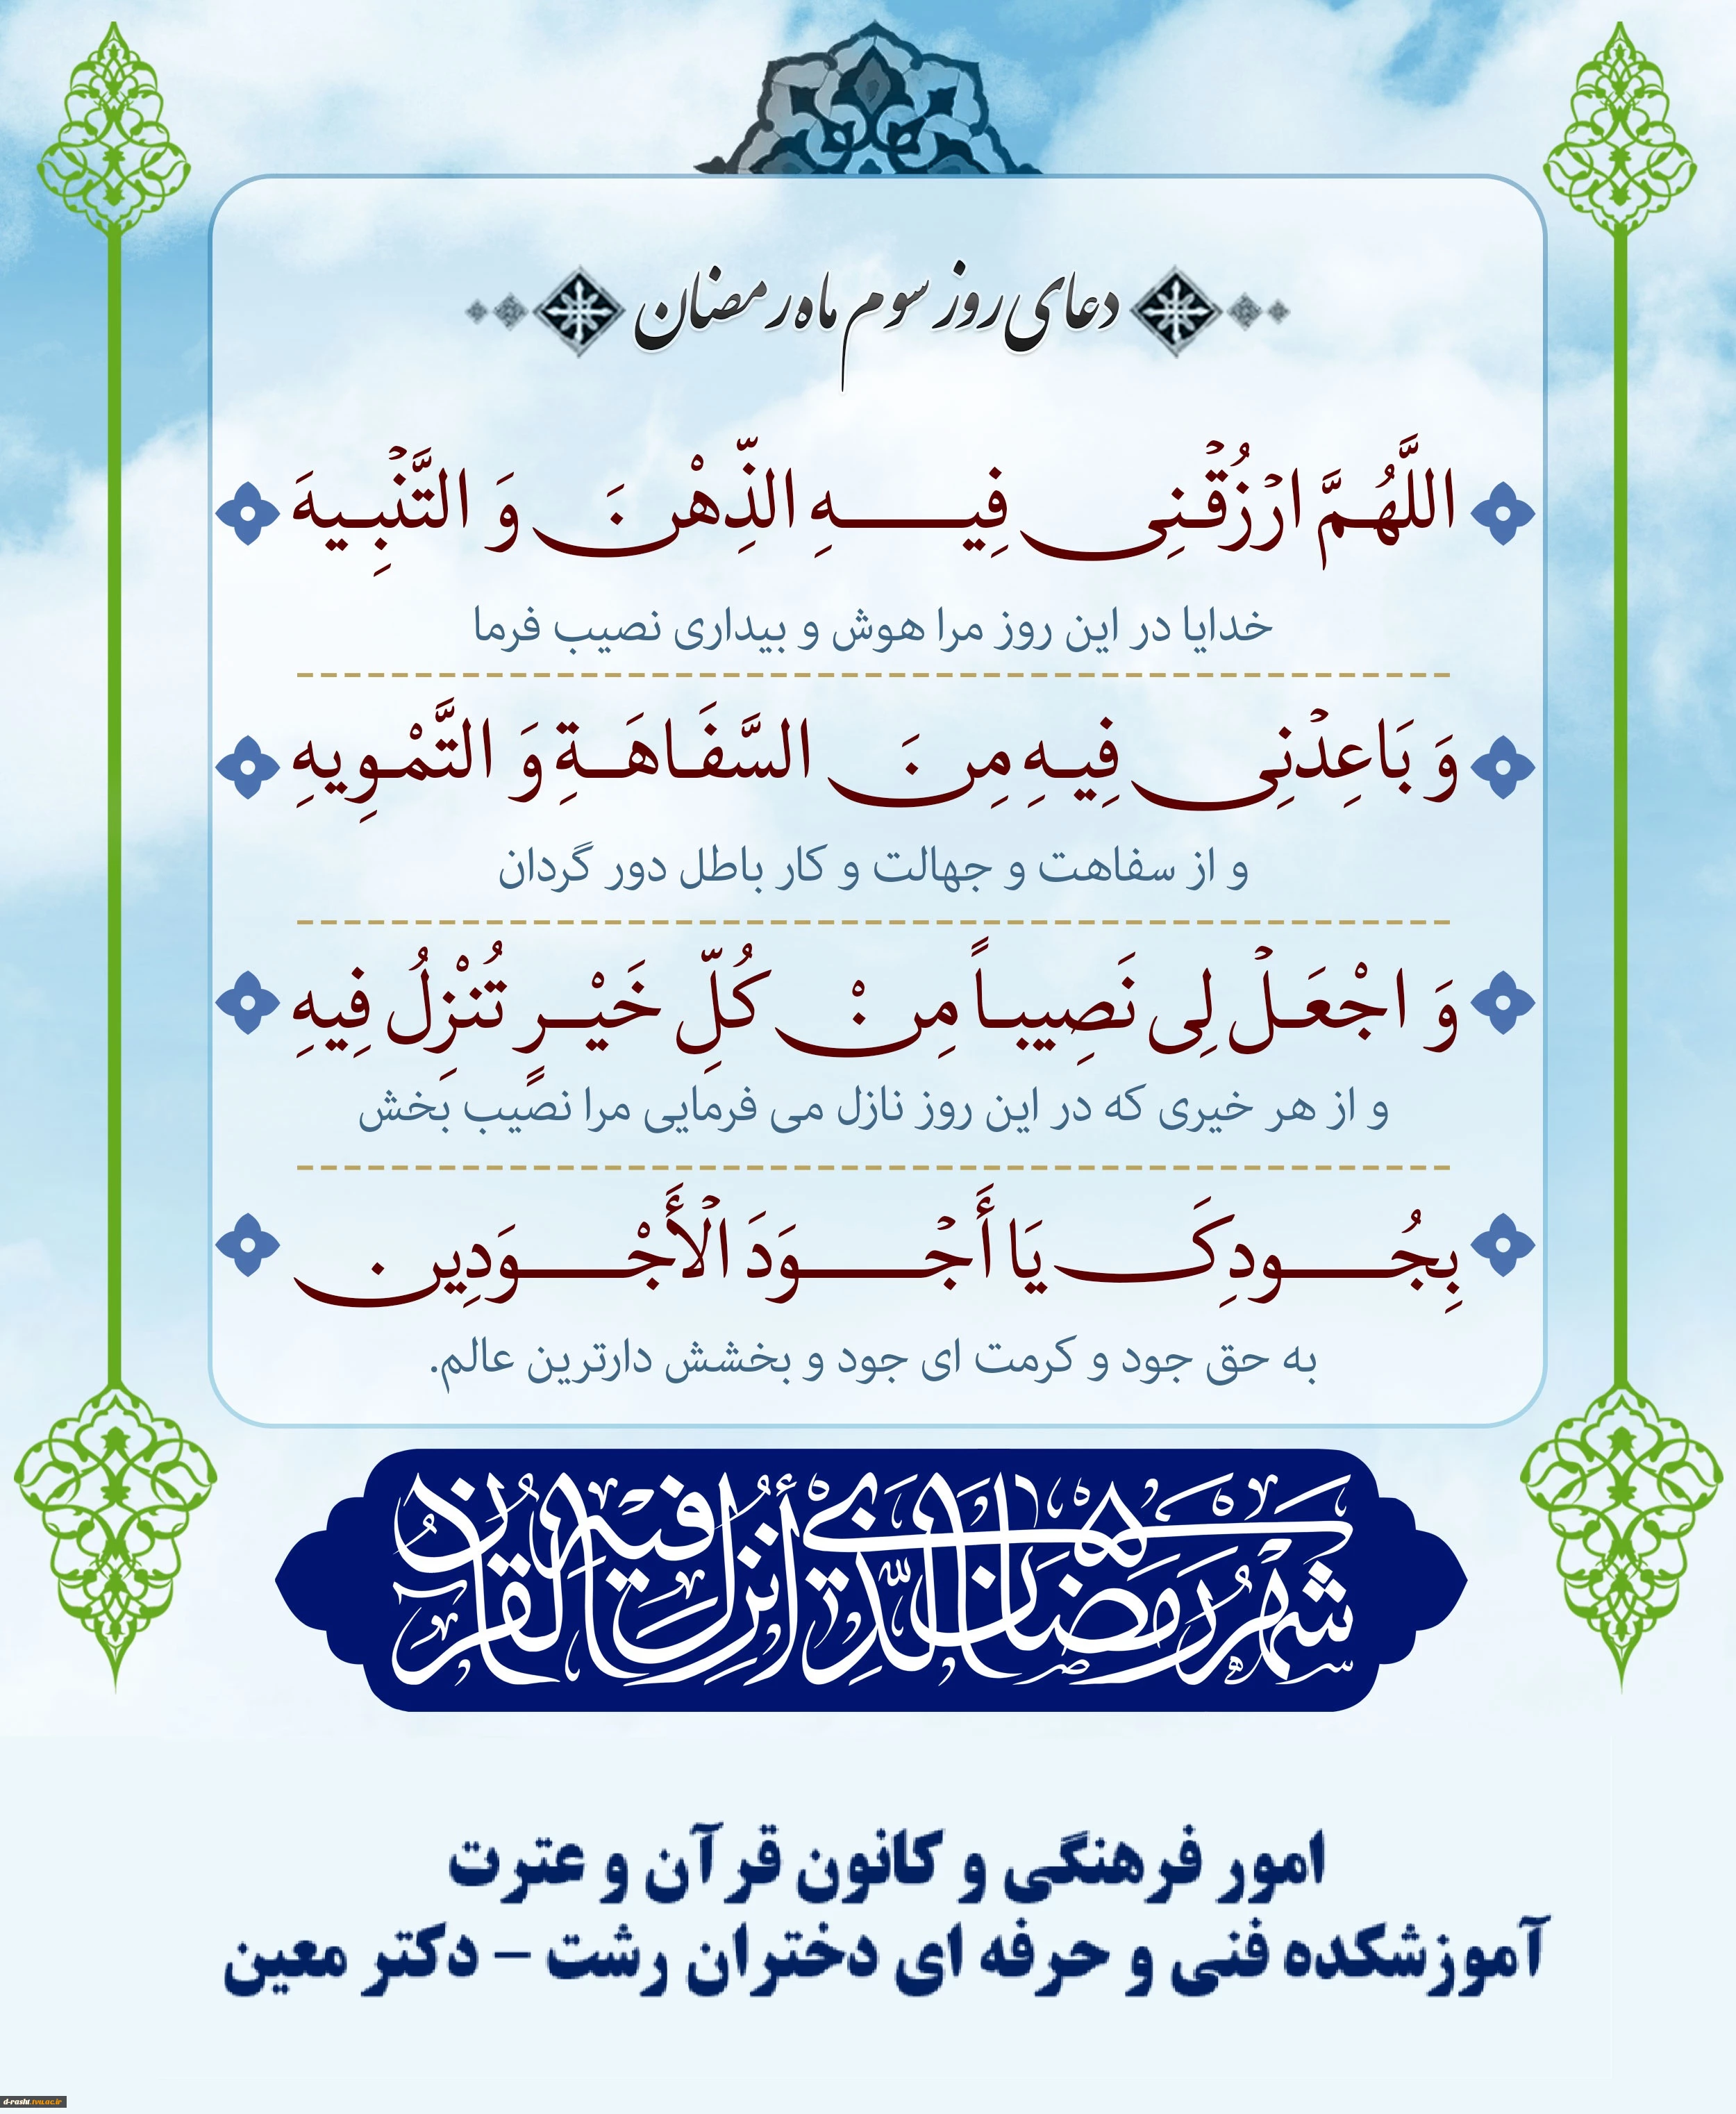 دعای روز سوم ماه رمضان
اللَّهُمَّ ارْزُقْنِی فِیهِ الذِّهْنَ وَ التَّنْبِیهَ
خدایا در این روز مرا هوش و بیداری نصیب فرما
وَ بَاعِدْنِی فِیهِ مِنَ السَّفَاهَةِ وَ التَّمْوِیهِ
و از سفاهت و جهالت و کار باطل دور گردان
وَ اجْعَلْ لِی نَصِیباً مِنْ کُلِّ خَیْرٍ تُنْزِلُ فِیهِ
و از هر خیری که در این روز نازل می فرمایی مرا نصیب بخش
بِجُودِکَ یَا أَجْوَدَ الْأَجْوَدِین
به حق جود و کرمت ای جود و بخشش دارترین عالم.
شهر رمضان الذی أنزل فیه القرآن
امور فرهنگی و کانون قرآن و عترت
آموزشکده فنی و حرفه ای دختران رشت – دکتر معین
d-rasht.tvu.ac.ir